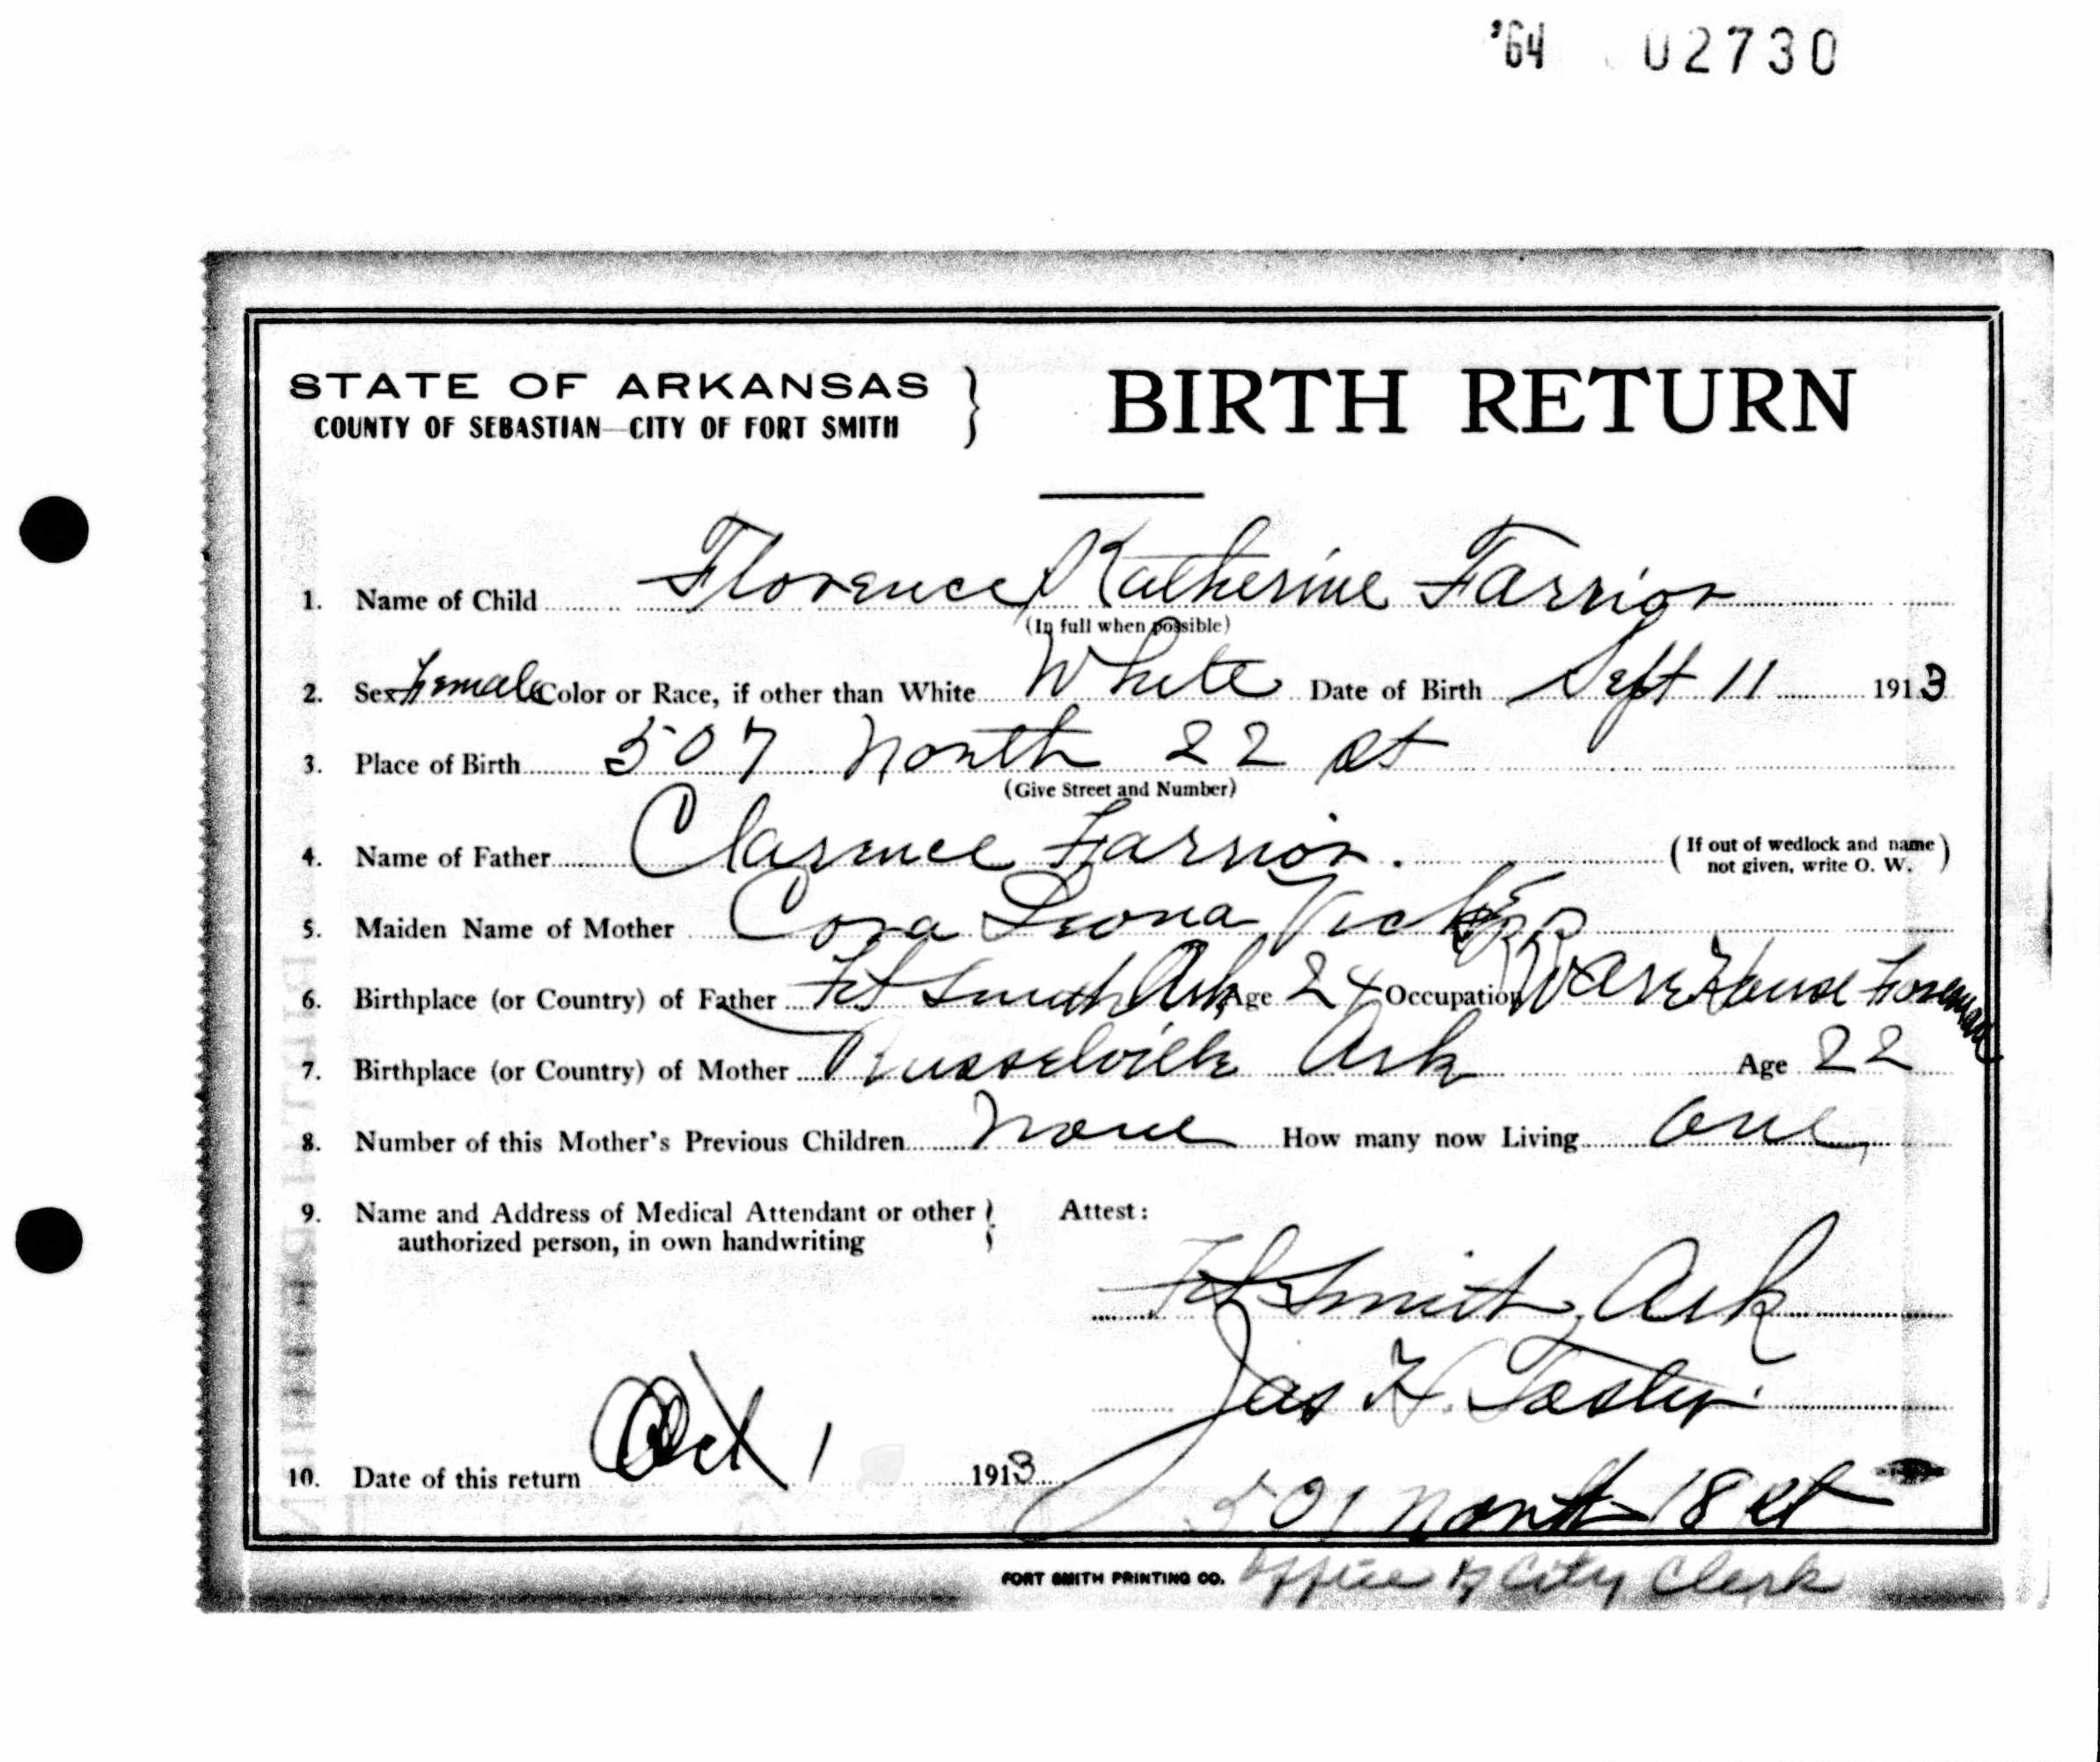 '64 02730
STATE OF ARKANSAS } BIRTH RETURN
COUNTY OF SEBASTIAN—CITY OF FORT SMITH
1. Name of Child Florence Katherine Farrior
(In full when possible)
2. Sex Female Color or Race, if other than White White Date of Birth Sept 11 1913
3. Place of Birth 507 North 22 st
(Give Street and Number)
4. Name of Father Clarence Farrior. (If out of wedlock and name not given, write O. W.)
5. Maiden Name of Mother Cora Leona
6. Birthplace (or Country) of Father Ft Smith Ark Age 24 Occupation RR WareHouse Foreman
7. Birthplace (or Country) of Mother Russelville Ark Age 22
8. Number of this Mother's Previous Children None How many now Living One
9. Name and Address of Medical Attendant or other authorized person, in own handwriting } Attest:
Ft Smith, Ark
Jas H.
10. Date of this return Oct 1 1913
501 North 18 st
FORT SMITH PRINTING CO. Office of City Clerk